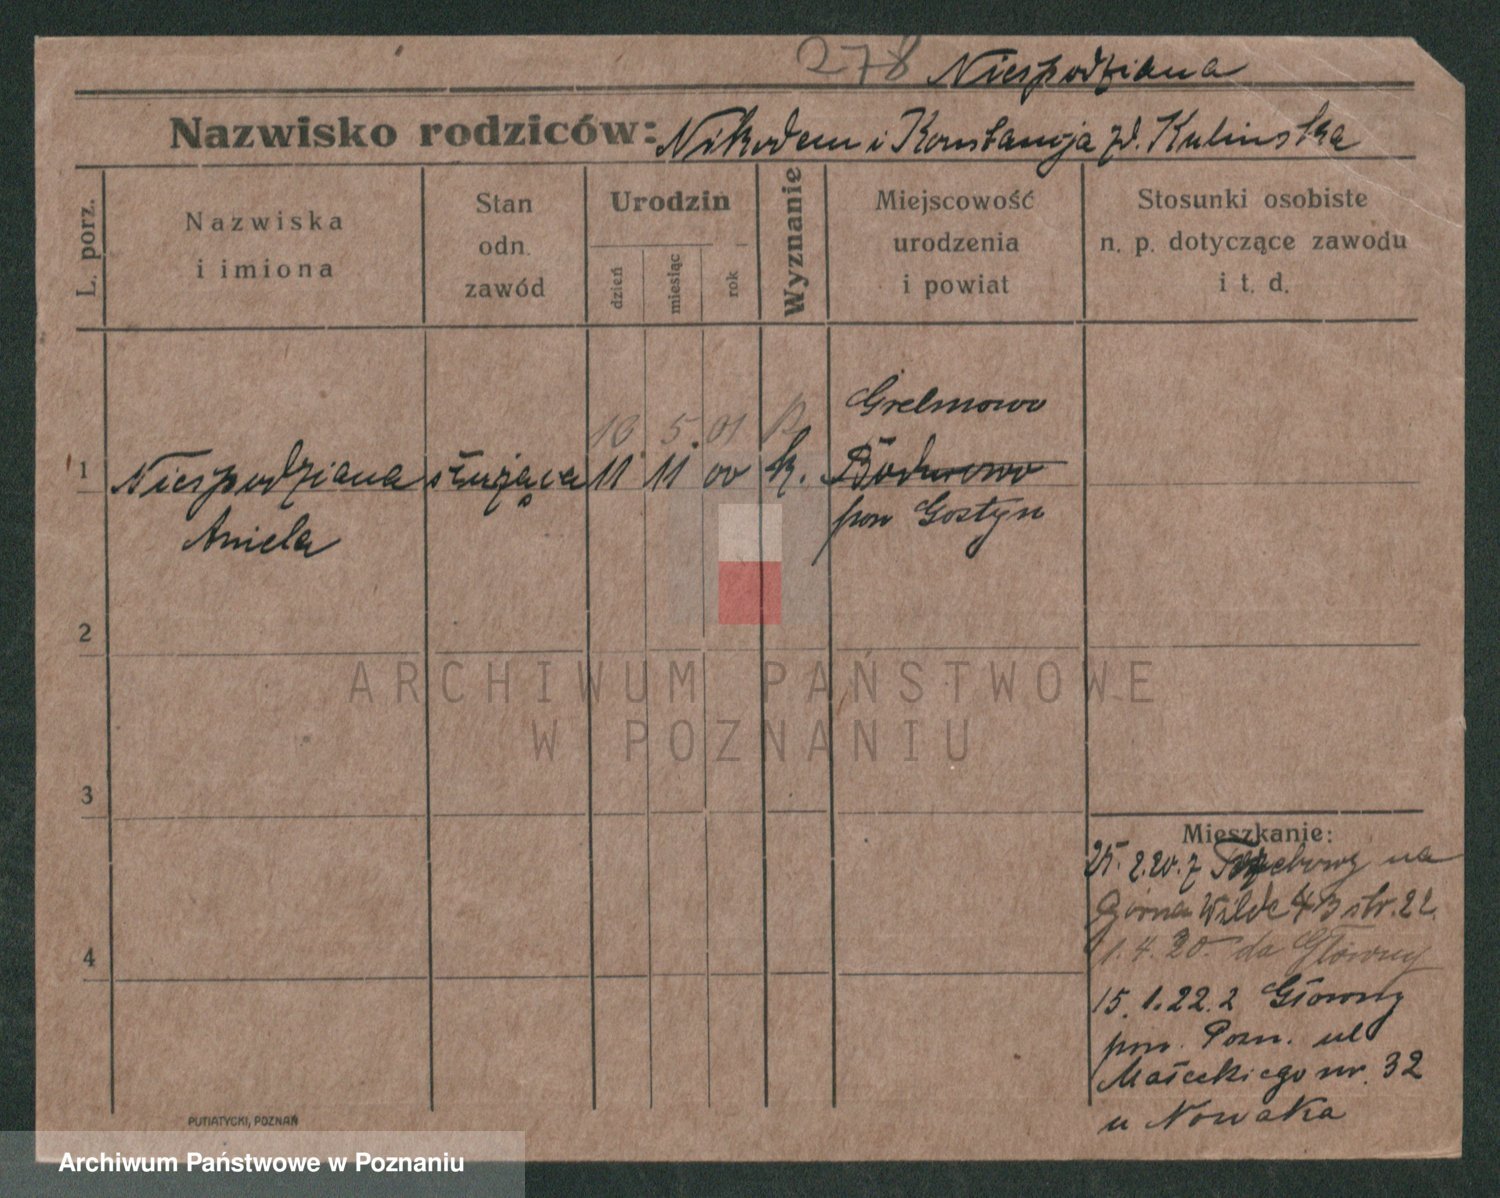 278 Niespodziana
Nazwisko rodziców: Nikodem i Konstancja zd. Kulinska
L. porz.
Nazwiska
i imiona
Stan
odn.
zawód
Urodzin
dzień
miesiąc
rok
Wyznanie
Miejscowość
urodzenia
i powiat
Stosunki osobiste
n. p. dotyczące zawodu
i t. d.
Grelmowo
10 5. 01
1 Niespodziana służąca 11 11 00 k.
Aniela
pow Gostyn
2
3
4
Mieszkanie:
25. 2. 20. z na
Górna Wilde 43 str. 22
1. 4. 20. do Główny
15. 1. 22. z Główny
pow. Pozn. ul
Małeckiego nr. 32
u Nowaka
PUTIATYCKI, POZNAŃ
ARCHIWUM PAŃSTWOWE
W POZNANIU
Archiwum Państwowe w Poznaniu